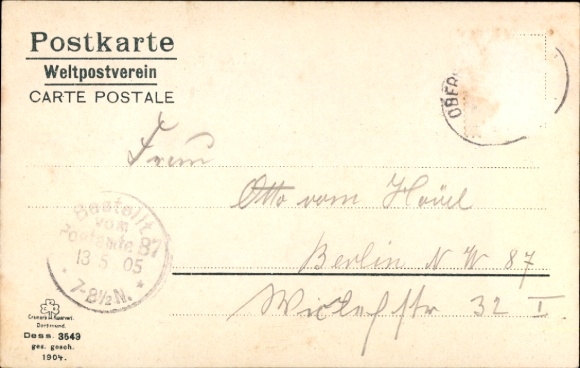 Postkarte
Weltpostverein
CARTE POSTALE
OBER
Frau
Otto vom Hövel
Berlin N W 87
32 I.
Bestellt
vom
Postamte 87
13 5 05
7-8½N.
Dortmund.
Dess. 3549
ges. gesch.
1904.